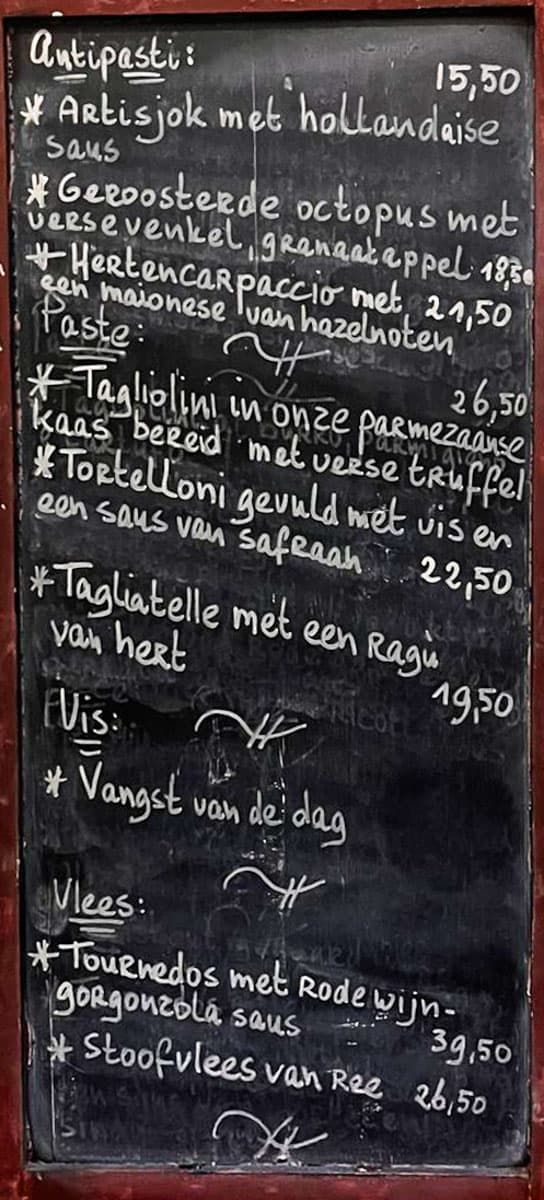 Antipasti:
15,50
* Artisjok met hollandaise
saus
* Geroosterde octopus met
verse venkel, granaatappel 18,50
* Hertencarpaccio met 21,50
een maionese van hazelnoten
Paste:
26,50
* Tagliolini in onze parmezaanse
kaas bereid met verse truffel
* Tortelloni gevuld met vis en
een saus van safraan 22,50
* Tagliatelle met een Ragù
van hert
19,50
Vis:
* Vangst van de dag
Vlees:
* Tournedos met Rode wijn-
gorgonzola saus
39,50
* Stoofvlees van Ree 26,50